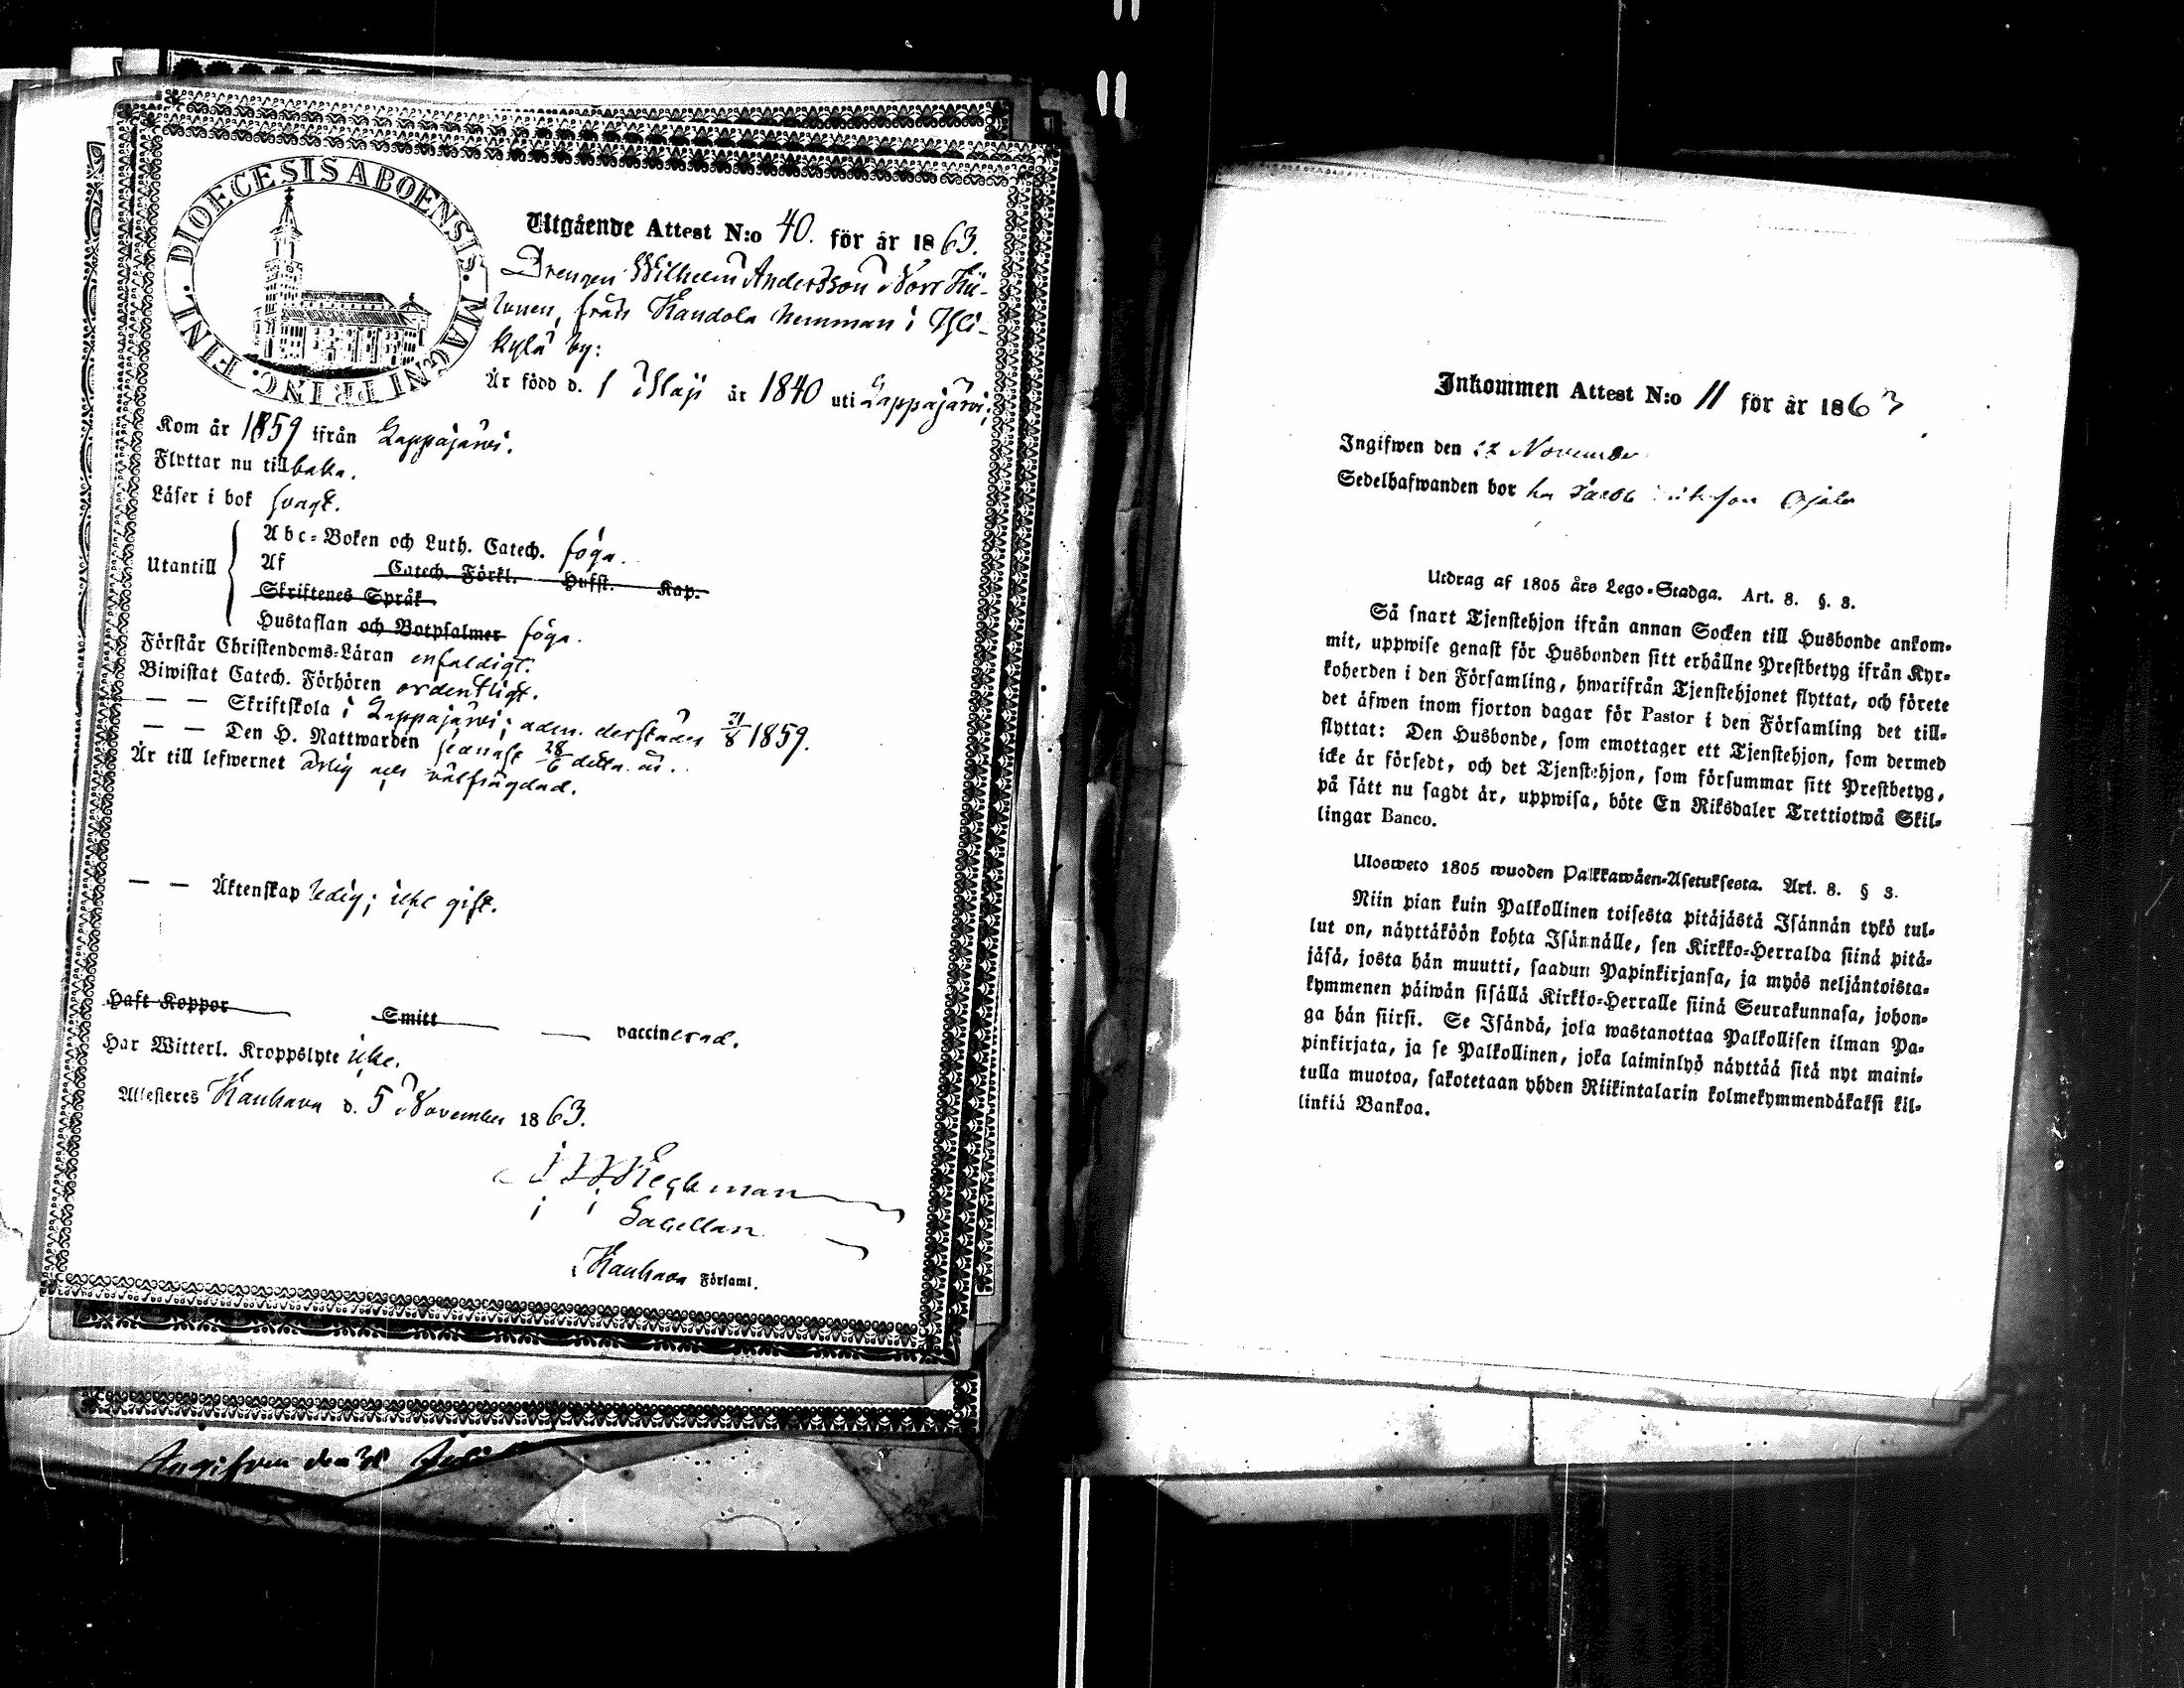 DIOECESIS ABOENSIS. MAGNI PRINC. FINL.
Utgående Attest N:o 40. för år 1863.
Drengen Wilhelm Andersson Norr
från Kandola hemman i Yli-
kylä by:
Är född d. 1 Maji år 1840 uti Lappajärvi;
Kom år 1859 ifrån Lappajärvi.
Flyttar nu tillbaka.
Läser i bok svagt.
Utantill
Abc-Boken och Luth. Catech. föga.
Af Catech. Förkl. Hufst. Kap.
Skriftenes Språk
Hustaflan och Botpsalmer föga.
Förstår Christendoms-Läran enfaldigt.
Biwistat Catech. Förhören ordentligt.
— — Skriftskola i Lappajärvi; adm. derstädes 21/8 1859.
— — Den H. Nattwarden senast 28/6 detta år.
Är till lefwernet ärlig och välfrägdad.
— — Äktenskap ledig; icke gift.
Haft Koppor Smitt — vaccinerad.
Har Witterl. Kroppslyte icke.
Attesteres Kauhava d. 5 November 1863.
Kauhava Församl.
Ingifven den
Inkommen Attest N:o 11 för år 1863
Ingifwen den 22 November
Sedelhafwanden bor hos Jacob Ojala
Utdrag af 1805 års Lego-Stadga. Art. 8. §. 3.
Så snart Tjenstehjon ifrån annan Socken till Husbonde ankom-
mit, uppwise genast för Husbonden sitt erhållne Prestbetyg ifrån Kyr-
koherden i den Församling, hwarifrån Tjenstehjonet flyttat, och förete
det äfwen inom fjorton dagar för Pastor i den Församling det till-
flyttat: Den Husbonde, som emottager ett Tjenstehjon, som dermed
icke är försedt, och det Tjenstehjon, som försummar sitt Prestbetyg,
på sätt nu sagdt är, uppwisa, böte En Riksdaler Trettiotwå Skil-
lingar Banco.
Ulosweto 1805 wuoden Palkkawäen-Asetuksesta. Art. 8. § 3.
Niin pian kuin Palkollinen toisesta pitäjästä Isännän tykö tul-
lut on, näyttäköön kohta Isännälle, sen Kirkko-Herralda siinä pitä-
jäsä, josta hän muutti, saadun Papinkirjansa, ja myös neljäntoista-
kymmenen päiwän sisällä Kirkko-Herralle siinä Seurakunnasa, johon-
ga hän siirsi. Se Isändä, joka wastanottaa Palkollisen ilman Pa-
pinkirjata, ja se Palkollinen, joka laiminlyö näyttää sitä nyt maini-
tulla muotoa, sakotetaan yhden Riikintalarin kolmekymmendäkaksi kil-
linkiä Bankoa.